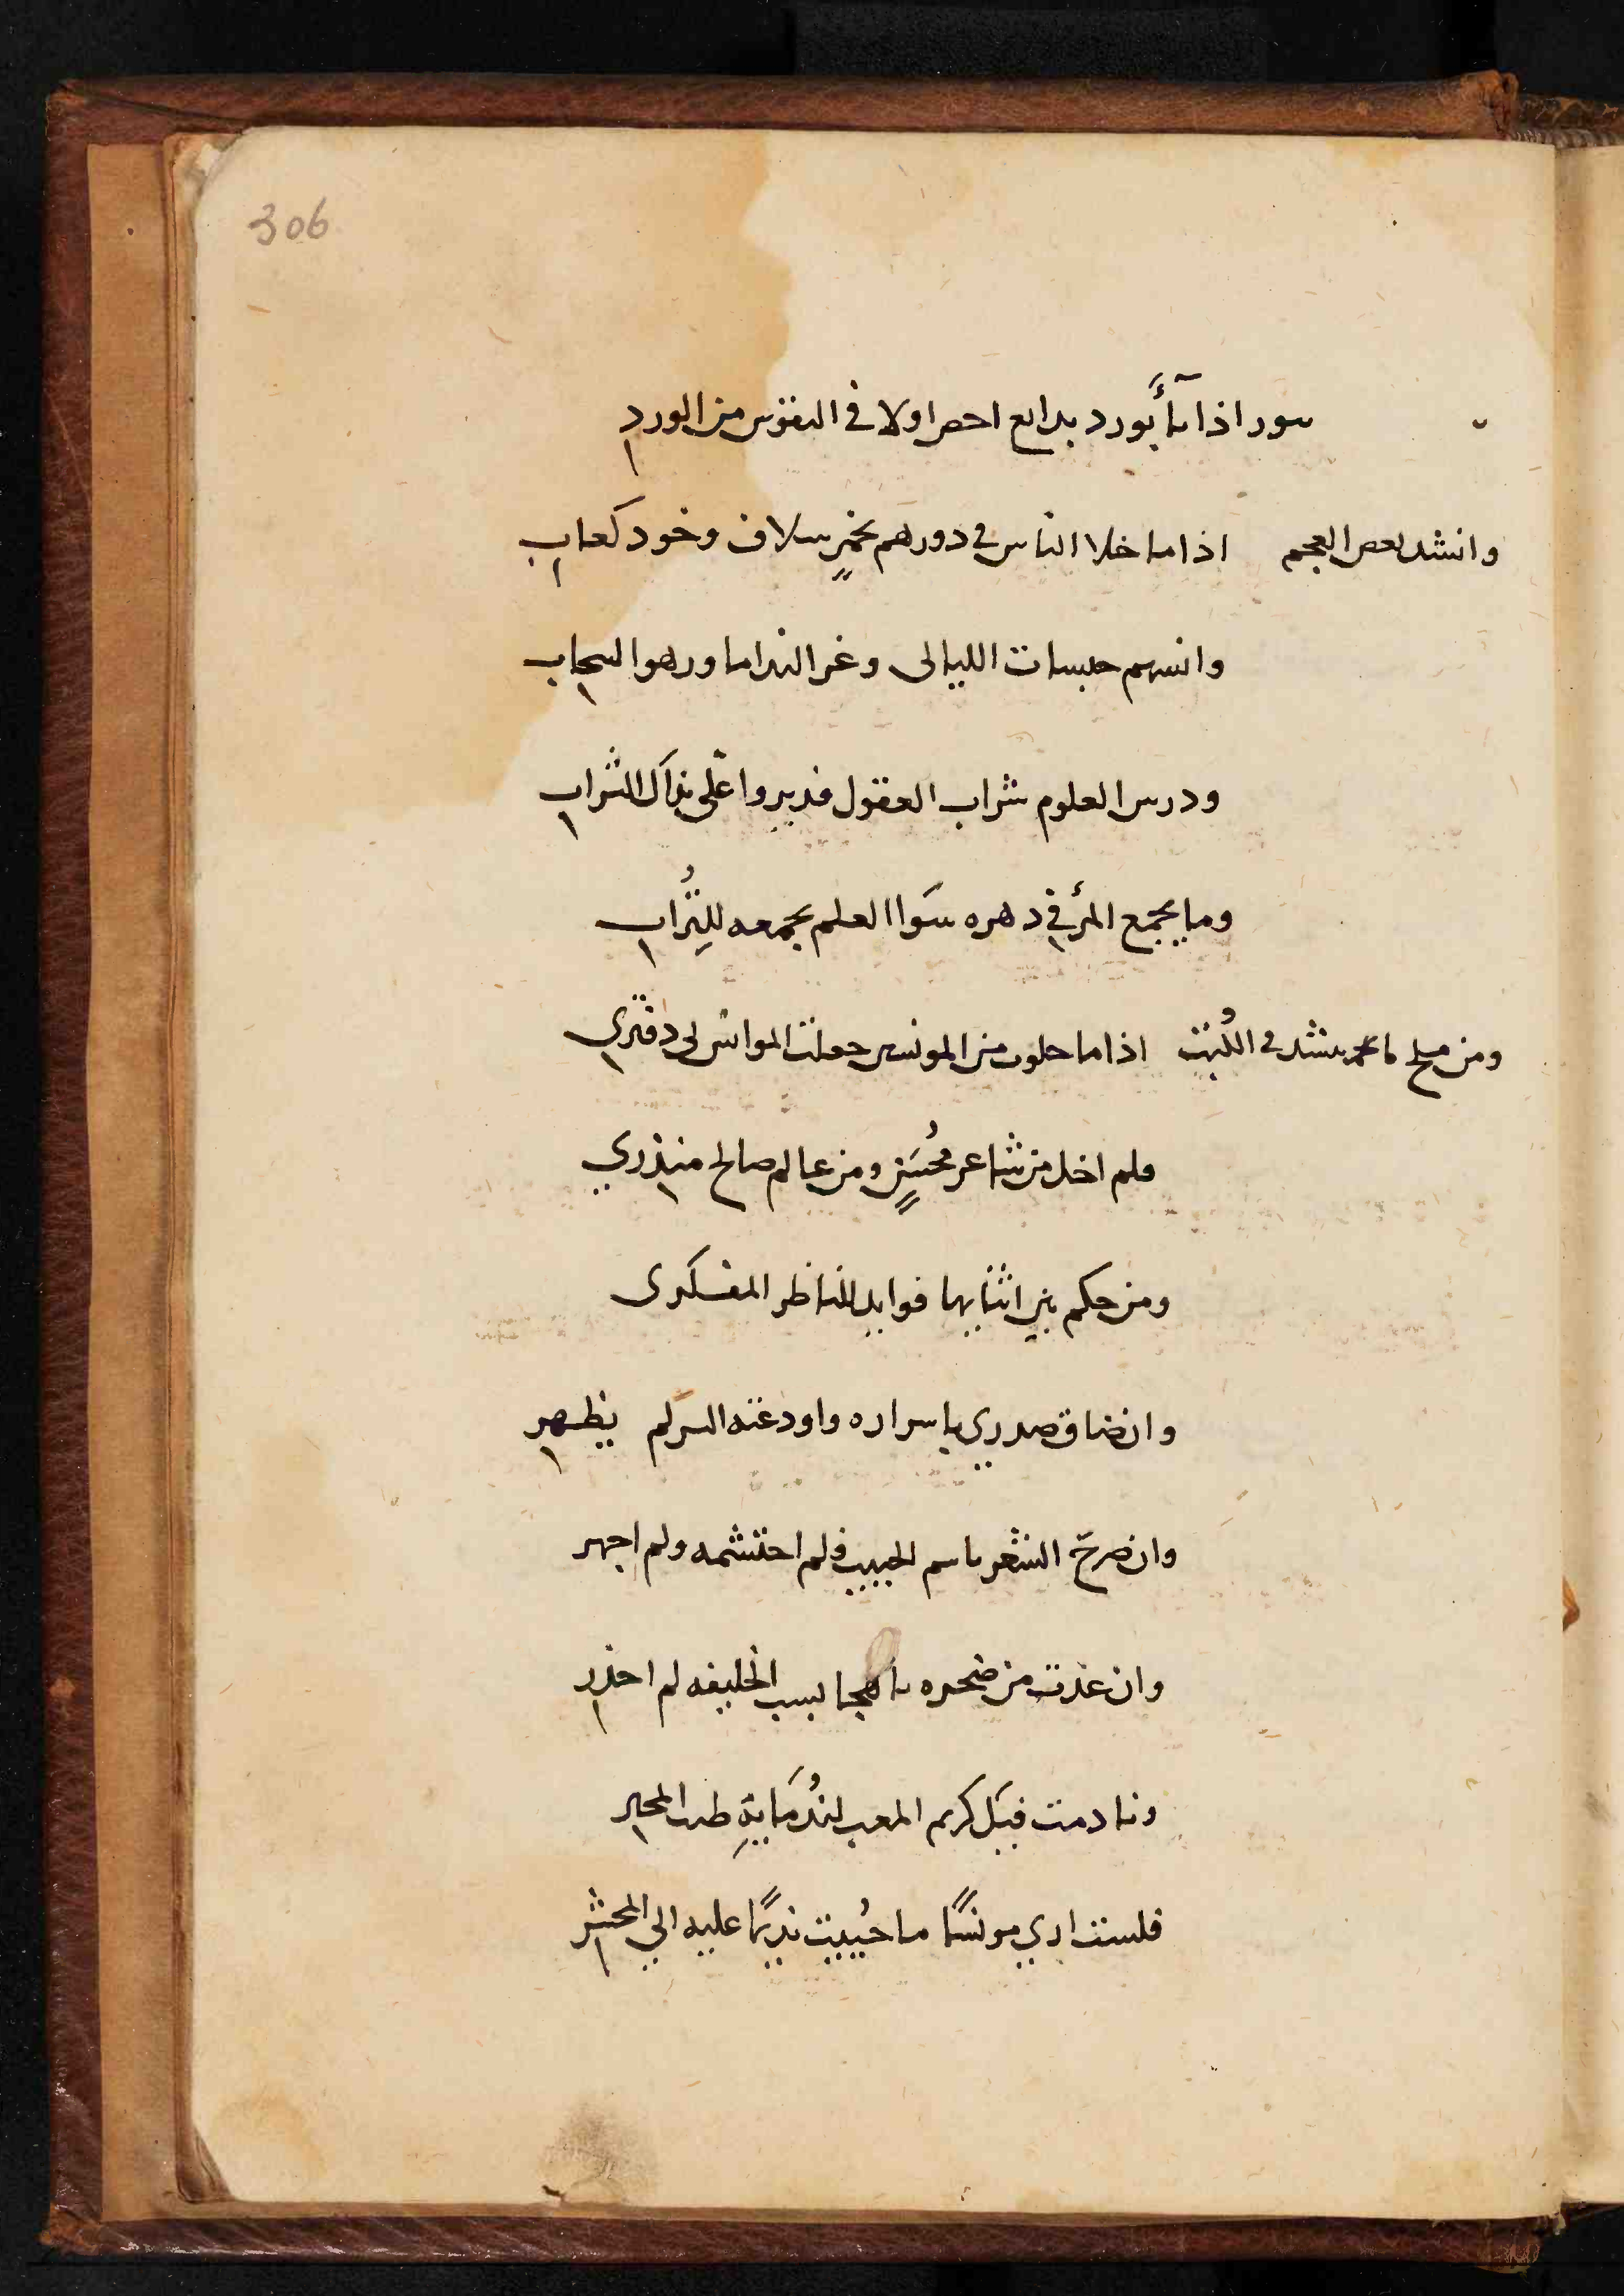 306
سور اذا ما أبورد بدايع احصر اولا في النفوس من الورد
وانشد بعض العجم اذا ما خلا الناس في دورهم بخمرٍ سلاف وخود كعاب
وانسهم حبسات الليالى وغر الندا ما ورهو السحاب
ودرس العلوم شراب العقول فديروا على بذاك الشراب
وما يجمع المرء في دهره سَوا العلم يجمعه للتُراب
ومن مليح ما ينشد في الكُتب اذا ما خلوت من المونسين جعلت الموانس لى دفتري
فلم اخل من شاعر مُحسَنٍ ومن عالم صالح منذري
ومن حكم بين اثنايها فوايد للناظر المفكرى
وان ضاق صدري باسراره واودعته السر لم يظهر
وان صرح الشعر باسم الحبيب فلم احتشمه ولم اجهر
وان عذت من ضجره بالهجا بسب الخليفه لم احذر
ونادمت فيه كريم المغيب لنُدمَايهِ طيب المخبر
فلست ارى مونسًا ما حُييت نديمًا عليه الي المحشر